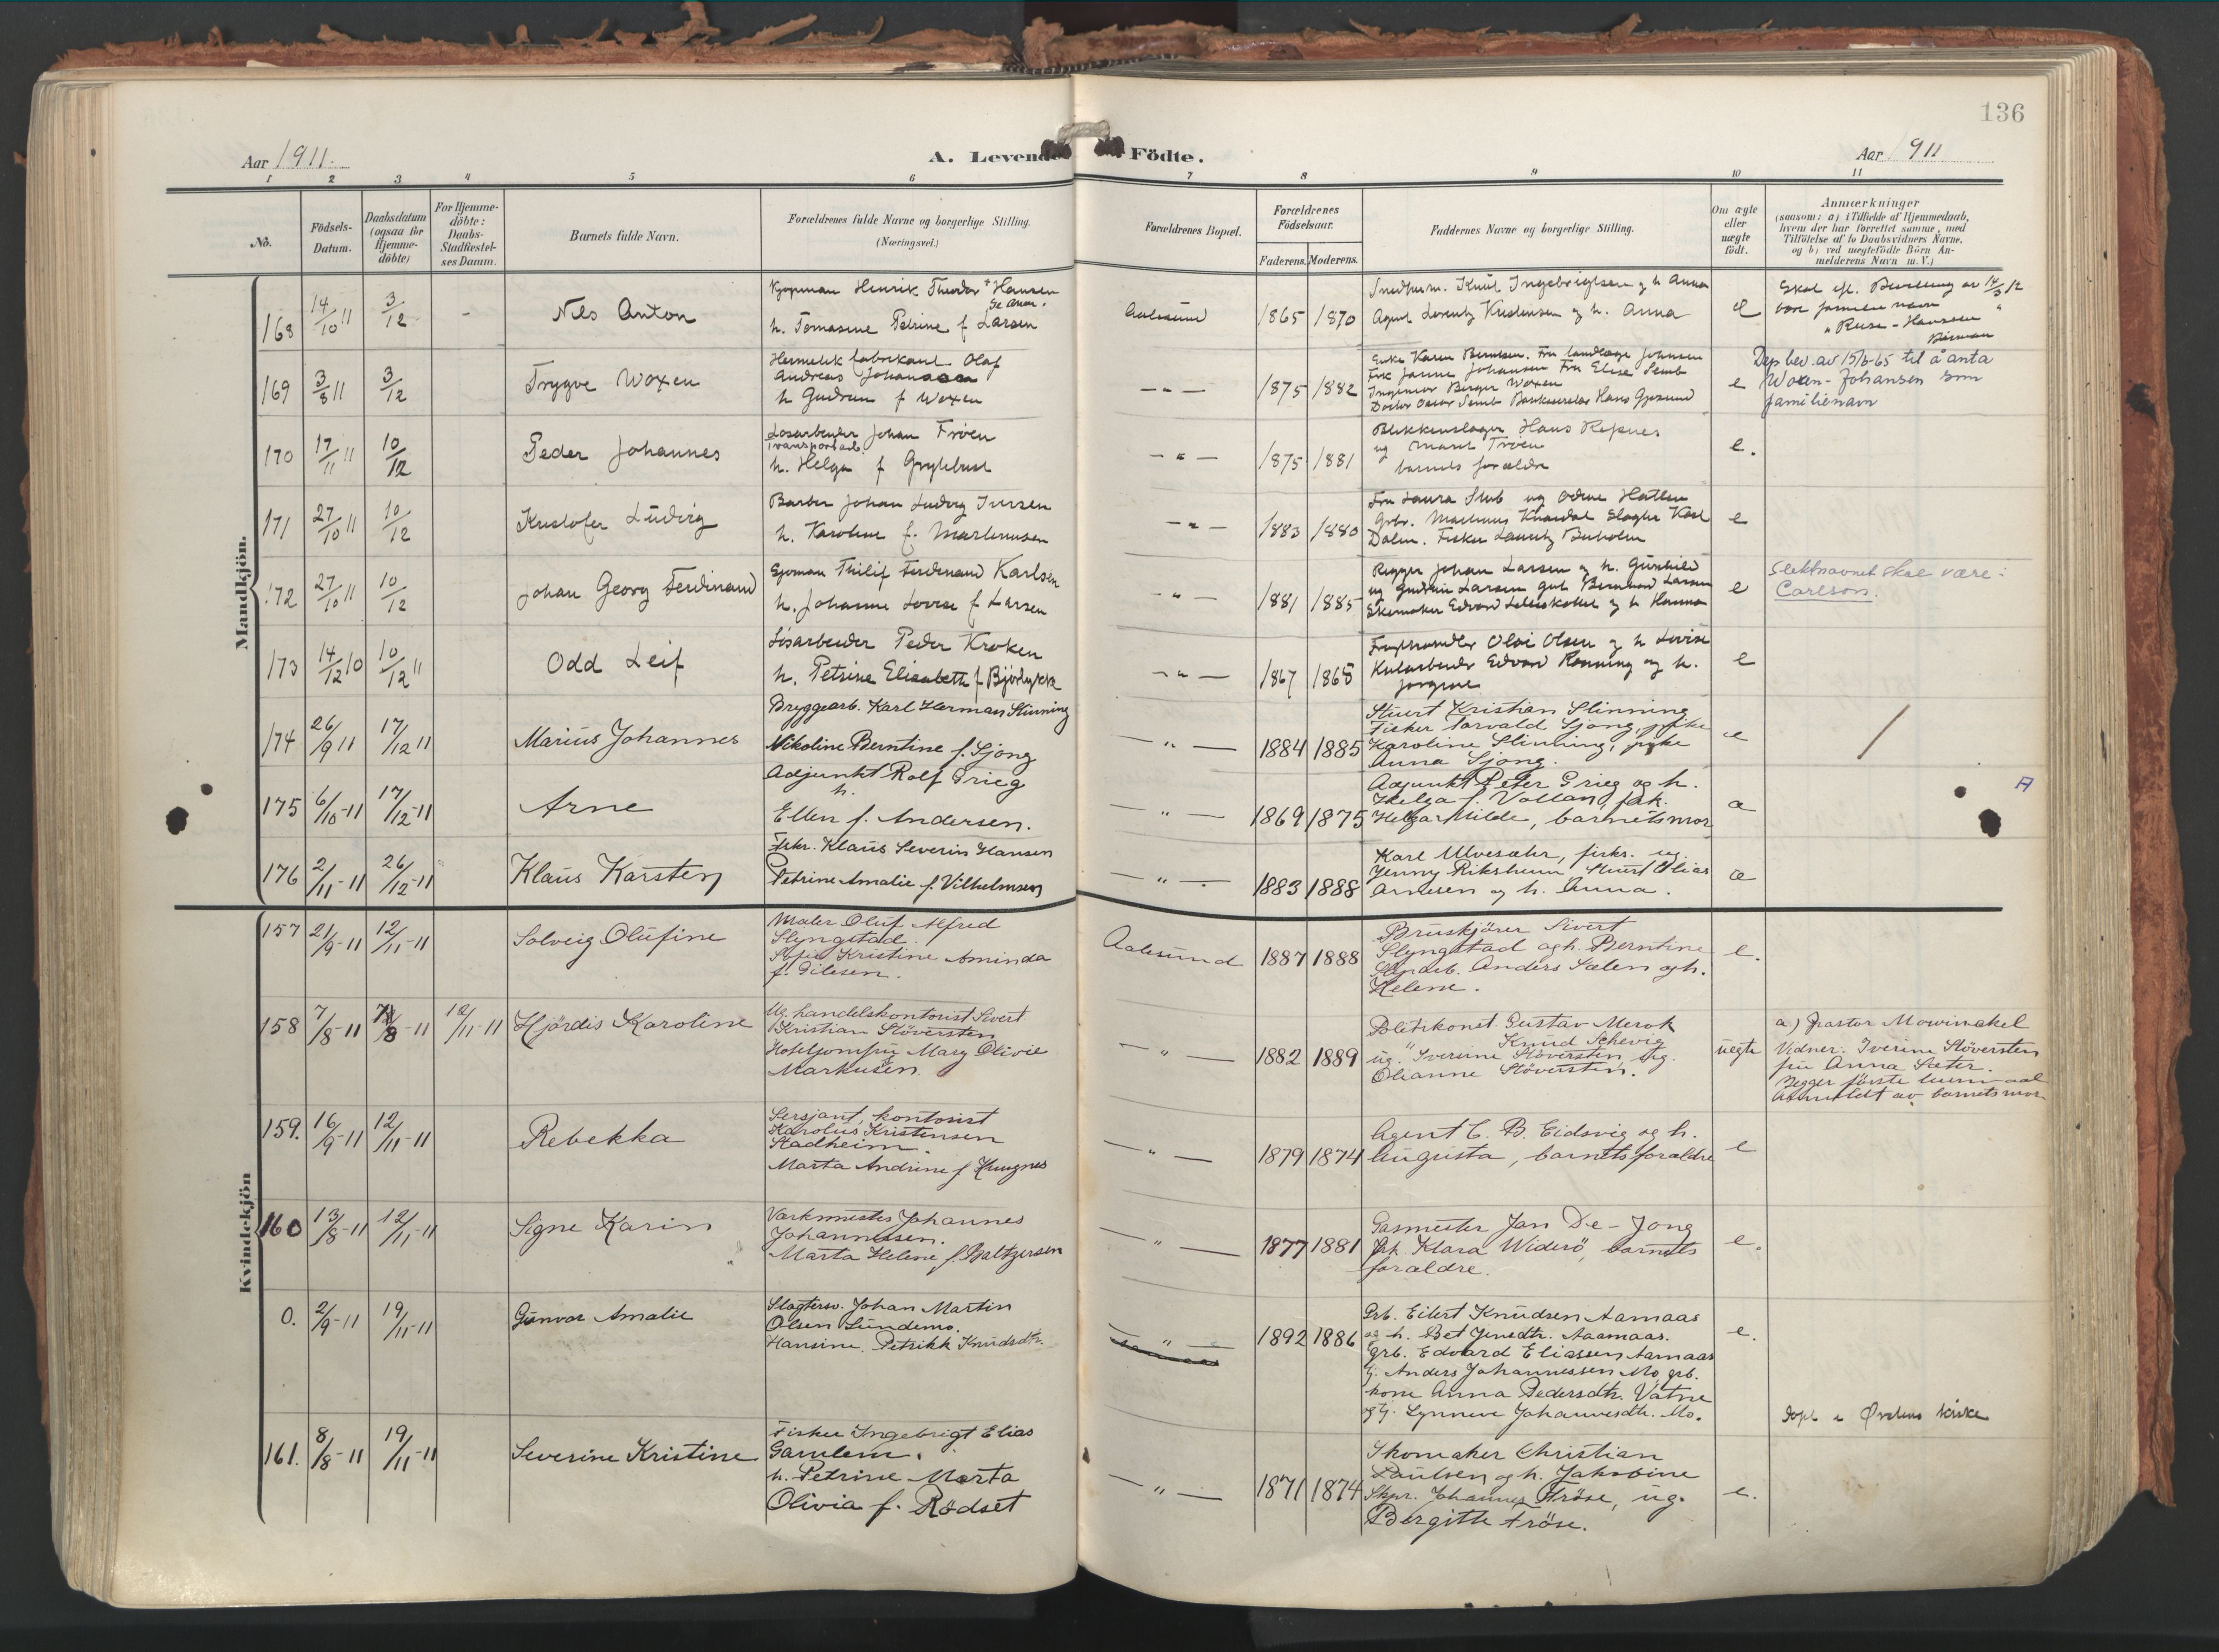 136
Aar 1911.
A. Levende Födte.
Aar 1911
1 2 3 4 5 6 7 8 9 10 11
No.
Födsels-Datum.
Daabsdatum (ogsaa for Hjemme-döbte)
For Hjemme-döbte: Daabs-Stadfæstel-ses Datum.
Barnets fulde Navn.
Forældrenes fulde Navne og borgerlige Stilling.
(Næringsvei.)
Forældrenes Bopæl.
Forældrenes Födselsaar.
Faderens. Moderens.
Faddernes Navne og borgerlige Stilling.
Om ægte eller uægte födt.
Anmærkninger
(saasom: a) i Tilfælde af Hjemmedaab,
hvem der har forrettet samme, med
Tilföielse af to Daabsvidners Navne.
og b) ved uægtefödte Börn An-
melderens Navn m. V.)
Mandkjön.
168 14/10 11 3/12 - Nils Anton
Kjøpman Henrik Theodor Hansen
h. Tomasine Petrine f Larsen
Aalesund 1865 1870
Knut Ingebrigtsen og h Anna
Agent Lorentz Kristensen og h. Anna
e
169 3/8 11 3/12 Trygve Woxen
Hermetik fabrikant Olaf
Andreas Johansen
h Gudrun f Woxen
— " — 1875 1882
Ingeniør Birger Woxen
e
Dep bev. av 15/6-65 til å anta
Woxen-Johansen som
familienavn
170 17/11 11 10/12 Peder Johannes
Løsarbeider Johan Trøen
transportarb.
h. Helga f
— " — 1875 1881
Blikkenslager Hans Repnes
og Marit Trøen
barnets forældre
e.
171 27/10 11 10/12 Kristofer Ludvig
Barber Johan Ludvig Iversen
h. Karoline f. Martinusen
— " — 1883 1880
Fru Laura Stub og Odine Hatlen
e
172 27/10 11 10/12 Johan Georg Ferdinand
Sjøman Thilif Ferdinand Karlsen
h. Johanne Lovise f Larsen
— " — 1881 1885
Rigger Johan Larsen og h. Gunhild
og Gudrun Larsen gut Bernhard Larsen
e
Slektsnavnet skal være:
Carlson.
173 14/12 10 10/12 11 Odd Leif
Løsarbeider Peder Kroken
h. Petrine Elisabeth f Bjørlykke
— " — 1867 1868
Olai Olsen og h Lovise
Kularbeider Edvard Rønning og h.
Jorgine
e
174 26/9 11 17/12 11 Marius Johannes
Bryggearb. Karl Herman Slinning
Nikoline Berntine f. Sjong
— " — 1884 1885
Stuert Kristian Slinning
Fisker Torvald Sjong, pike
Karoline Slinning, pike
Anna Sjong.
e
175 6/10-11 17/12-11 Arne
Adjunkt Rolf Grieg
h.
Ellen f. Andersen.
— " — 1869 1875
Adjunkt Peter Grieg og h.
Helga f. Vollan, frk.
Helga Milde, barnets mor
æ
A
176 2/11-11 26/12-11 Klaus Karsten
Fisker. Klaus Severin Hansen
Petrine Amalie f. Vilhelmsen
— " — 1883 1888
Karl Ulvesæter, fisk. ug
Jenny Stuert Elias
Arnesen og h. Anna.
æ
Kvindekjön
157 21/9-11 12/11-11 Solveig Olufine
Maler Oluf Alfred
Slyngstad.
Sofie Kristine Aminda
f. Gilesen.
Aalesund 1887 1888
Bruskjører Sivert
Slyngstad og h. Berntine
Anders Salen og h.
Helene.
e.
158 7/8-11 7/8-11 12/11-11 Hjördis Karoline
Ug. handelskontorist Sivert
Kristian Støversten
Hoteljomfru Mary Olivie
Markusen.
— " — 1882 1889
Politikonst. Gustav Merok
" Knud Schevig
ug. Iverine Støversten, ug.
Olianne Støversten.
uegte
a) Pastor Mowinckel
Vidner: Iverine Støversten
fru Anna Sæter.
Begger første leiermaal
Anmeldt av barnets mor
159. 16/9-11 12/11-11 Rebekka
Sersjant, kontorist
Karolus Kristensen
Stadheim.
Marta Andrine f
— " — 1879 1874
Agent C. B. Eidsvig og h.
Augusta, barnets forældre
e
160 13/8-11 12/11-11 Signe Karin
Værkmester Johannes
Johannessen.
Marta Helene f. Baltzersen
— " — 1877 1881
Gasmester Jan De-Jong
frk. Klara Widerø, barnets
forældre.
e.
0. 2/9-11 19/11-11 Gunvor Amalie
Slagtersv. Johan Martin
Olsen Lundemo.
Hansine Petrikk Knudsdtr.
— " — 1892 1886
Grb. Eilert Knudsen Aamaas
og h. Bet Jensdtr. Aamaas.
Grb. Edvard Eliassen Aamaas
Anders Johannessen Mo, grb.
kone Anna Pedersdtr. Vatne
og Synneve Johannesdtr. Mo.
e.
døpt i kirke
161. 8/8-11 19/11-11 Severine Kristine
Fisker Ingebrigt Elias
Gamlem.
h. Petrine Marta
Olivia f. Rødset
— " — 1871 1874
Skomaker Christian
Paulsen og h. Jakobine
Skpr. Johannes Frøse, ug.
Bergitte Frøse.
e.